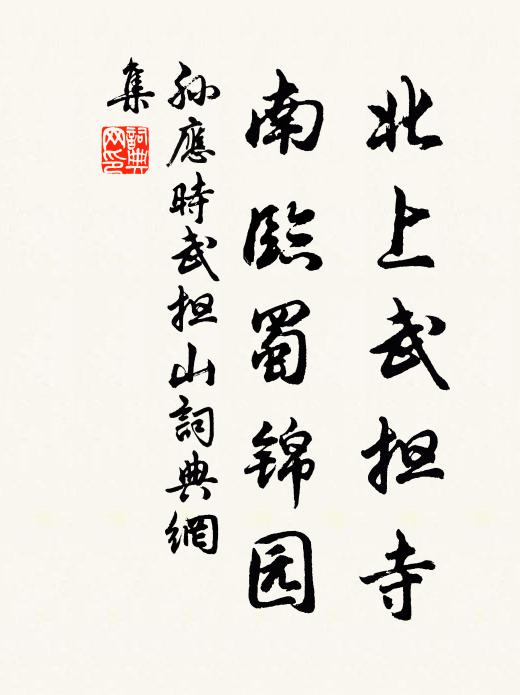 北上武担寺
南臨蜀锦园
孙應時武担山詞典網
集
詞典网印